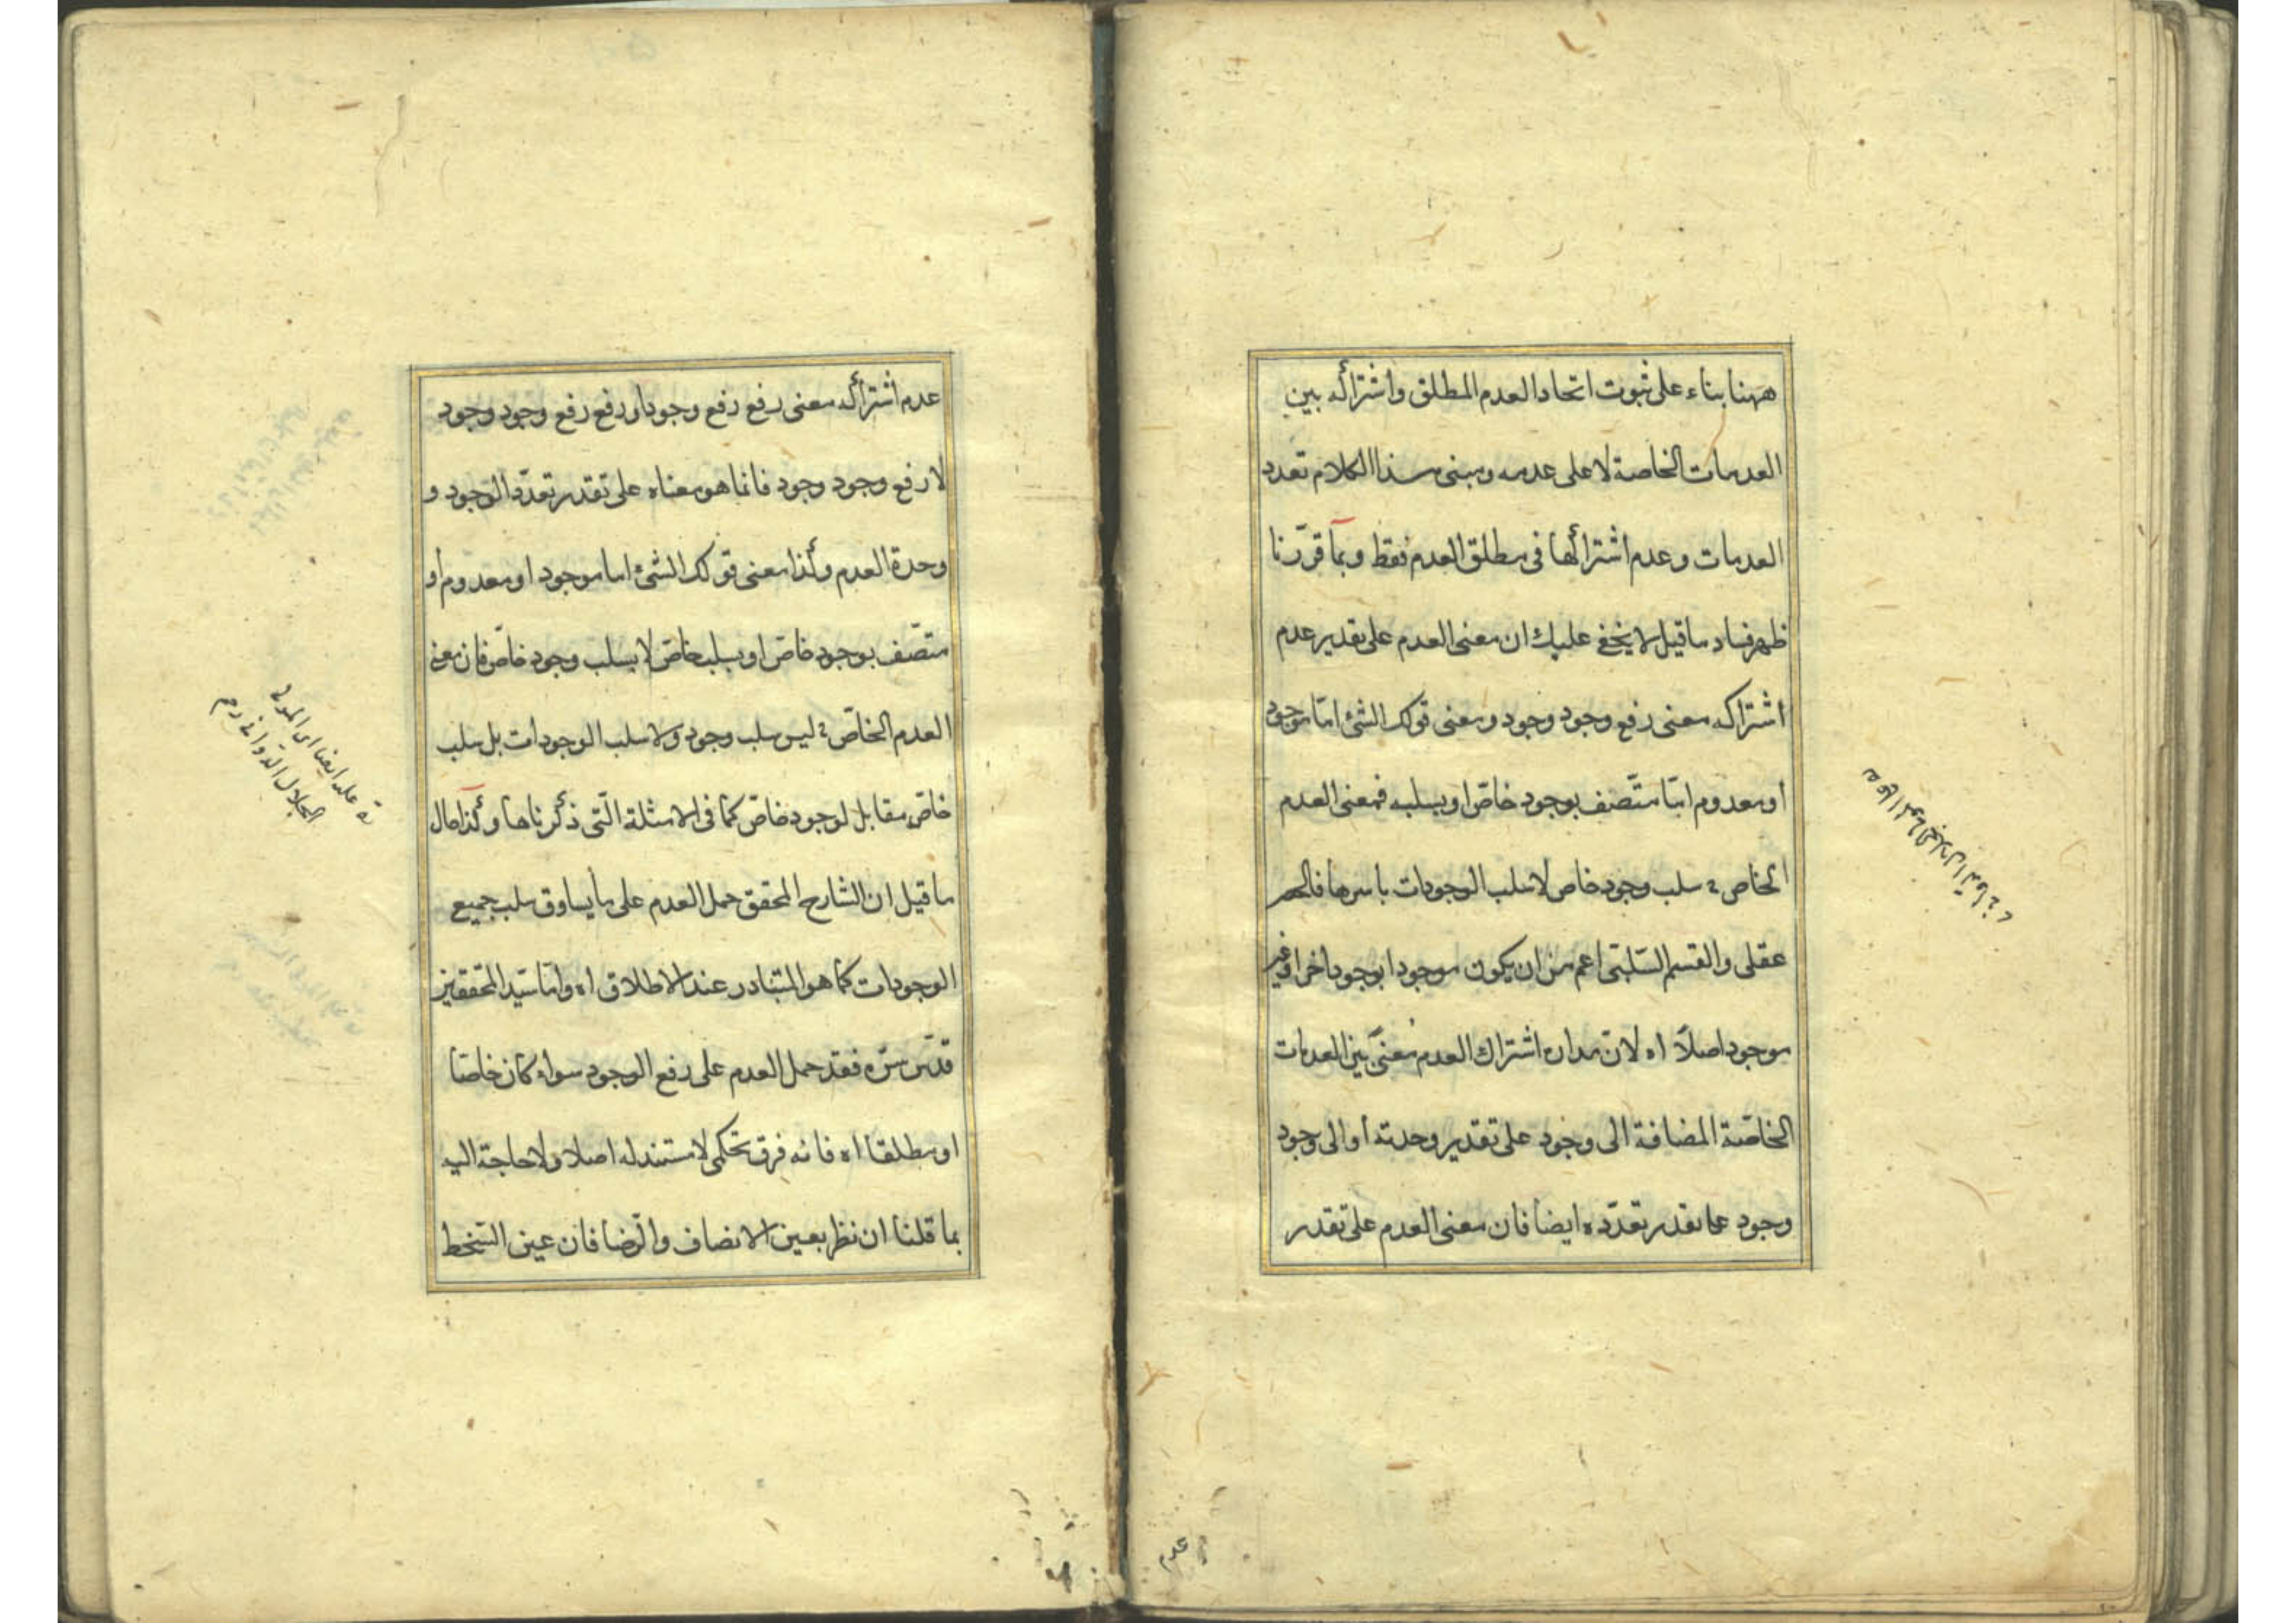 ههنا بناء على ثبوت اتحاد العدم المطلق واشتراكه بين
العدمات الخاصة لا على عدمه ومبنى هذا الكلام تعدد
العدمات وعدم اشتراكها فى مطلق العدم فقط وبما قررنا
ظهر فساد ما قيل لا يخفى عليك ان معنى العدم على تقدير عدم
اشتراكه معنى رفع وجود وجود ومعنى قولك الشئ اما موجود
او معدوم اما متصف بوجود خاص او بسلبه فمعنى العدم
الخاص ح سلب وجود خاص لا سلب الوجودات باسرها فالحصر
عقلى والقسم السلبى اعم من ان يكون موجودا بوجود اخر او غير
موجود اصلا اه لان مدار اشتراك العدم معنى بين العدمات
الخاصة المضافة الى وجود على تقدير وحدته او الى وجود
وجود على تقدير تعدده ايضا فان معنى العدم على تقدير
عدم
عدم اشتراكه معنى رفع رفع وجود او رفع رفع وجود وجود
لا رفع وجود وجود فانما هو معناه على تقدير تعدد الوجود و
وحدة العدم وكذا معنى قولك الشئ اما موجود او معدوم او
متصف بوجود خاص او بسلب خاص لا بسلب وجود خاص فان معنى
العدم الخاص ح ليس سلب وجود ولا سلب الوجودات بل سلب
خاص مقابل لوجود خاص كما فى الامثلة التى ذكرناها وكذا حال
ما قيل ان الشارح المحقق حمل العدم على ما يساوق سلب جميع
الوجودات كما هو المتبادر عند الاطلاق اه واما سيد المحققين
قدس سره فقد حمل العدم على رفع الوجود سواء كان خاصا
او مطلقا اه فانه فرق تحكمى لا مستند له اصلا ولا حاجة اليه
بما قلنا ان نظر بعين الانصاف والرضا فان عين السخط
الجلال الدوانى رحم